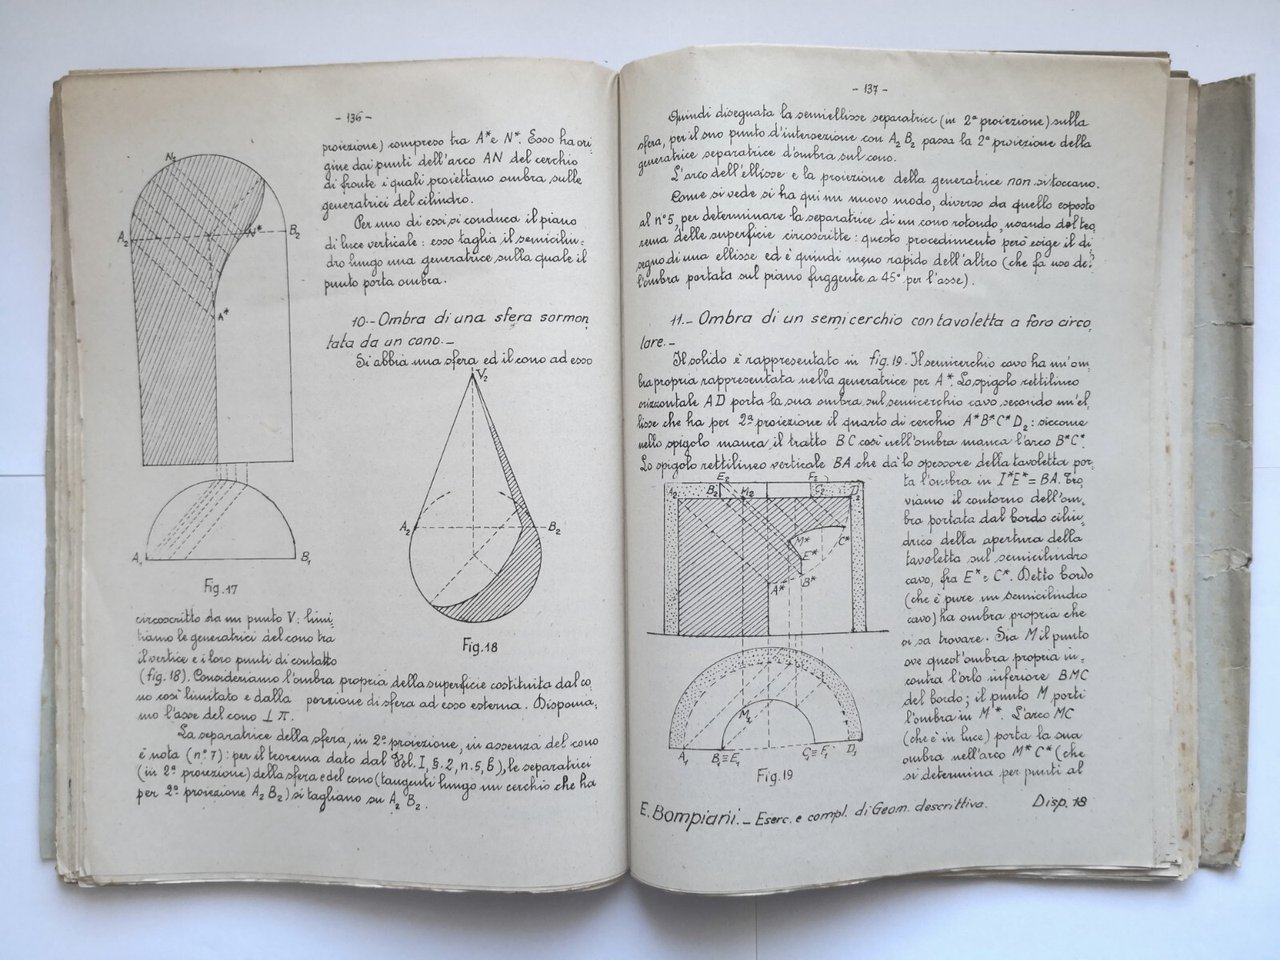 - 136 -
proiezione) compreso tra A* e N*. Esso ha ori-
gine dai punti dell'arco AN del cerchio
di fronte i quali proiettano ombra sulle
generatrici del cilindro.
Per uno di essi si conduca il piano
di luce verticale: esso taglia il semicilin-
dro lungo una generatrice sulla quale il
punto porta ombra.
10.- Ombra di una sfera sormon
tata da un cono.-
Si abbia una sfera ed il cono ad esso
N2
A2
N*
B2
A*
A1
B1
Fig.17
V2
A2
B2
Fig.18
circoscritto da un punto V: limi-
tiamo le generatrici del cono tra
il vertice e i loro punti di contatto
(fig. 18). Consideriamo l'ombra propria della superficie costituita dal co
no così limitato e dalla porzione di sfera ad esso esterna. Disponia,
mo l'asse del cono ⊥ π.
La separatrice della sfera, in 2ª proiezione, in assenza del cono
è nota (n° 7): per il teorema dato dal Vol. I, §. 2, n. 5, b), le separatrici
(in 2ª proiezione) della sfera e del cono (tangenti lungo un cerchio che ha
per 2ª proiezione A2 B2) si tagliano su A2 B2.
- 137 -
Quindi disegnata la semiellisse separatrice (in 2ª proiezione) sulla
sfera, per il suo punto d'intersezione con A2 B2 passa la 2ª proiezione della
generatrice separatrice d'ombra sul cono.
L'arco dell'ellisse e la proiezione della generatrice non si toccano.
Come si vede si ha qui un nuovo modo, diverso da quello esposto
al n° 5, per determinare la separatrice di un cono rotondo, usando del teo
rema delle superficie circoscritte: questo procedimento però esige il di
segno di una ellisse ed è quindi meno rapido dell'altro (che fa uso del-
l'ombra portata sul piano fuggente a 45° per l'asse).
11.- Ombra di un semicerchio con tavoletta a foro circo,
lare.-
Il solido è rappresentato in fig. 19. Il semicerchio cavo ha un'om-
bra propria rappresentata nella generatrice per A*. Lo spigolo rettilineo
orizzontale AD porta la sua ombra sul semicerchio cavo secondo un'el-
lisse che ha per 2ª proiezione il quarto di cerchio A*B*C*D2: siccome
nello spigolo manca il tratto BC così nell'ombra manca l'arco B*C*.
Lo spigolo rettilineo verticale BA che dà lo spessore della tavoletta por-
ta l'ombra in I*E* = BA. Tro,
viamo il contorno dell'om-
bra portata dal bordo cilin-
drico della apertura della
tavoletta sul semicilindro
cavo, fra E* e C*. Detto bordo
(che è pure un semicilindro
cavo) ha ombra propria che
si sa trovare. Sia M il punto
ove quest'ombra propria in-
contra l'orlo inferiore BMC
del bordo; il punto M porti
l'ombra in M*. L'arco MC
(che è in luce) porta la sua
ombra nell'arco M* C* (che
si determina per punti al
A2
B2
E2
M2
F2
C2
D2
M*
C*
E*
B*
A*
M1
A1
B1≡E1
C1≡F1
D1
Fig.19
E. Bompiani.- Eserc. e compl. di Geom. descrittiva.
Disp. 18